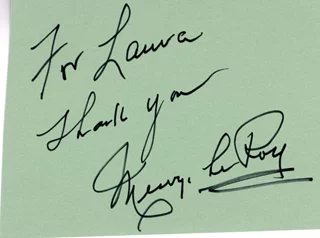 For Laura
Thank you
Mervyn LeRoy